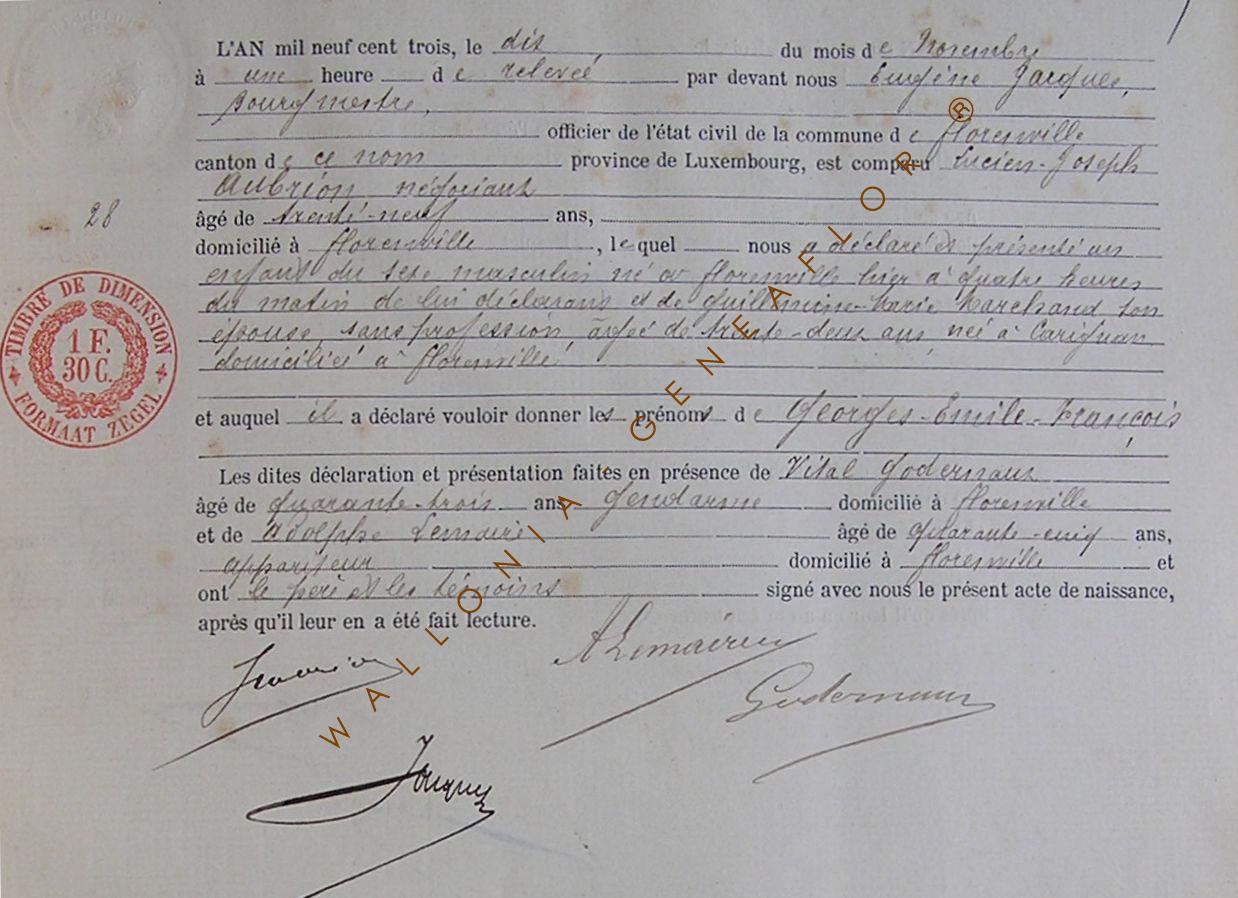 L'AN mil neuf cent trois, le dix du mois de Novembre
à une heure de relevée par devant nous Eugène Jacques,
Bourgmestre,
officier de l'état civil de la commune de Florenville
canton de ce nom province de Luxembourg, est comparu Lucien-Joseph
Aubrion négociant
28
âgé de trente-neuf ans,
domicilié à Florenville, lequel nous a déclaré et présenté un
enfant du sexe masculin né à Florenville hier à quatre heures
du matin de lui déclarant et de Guillemine-Marie Marchand son
épouse, sans profession, âgée de trente-deux ans, née à Carignan
domiciliée à Florenville
TIMBRE DE DIMENSION
1 F.
30 C.
FORMAAT ZEGEL
et auquel il a déclaré vouloir donner les prénoms de Georges-Emile-François
Les dites déclaration et présentation faites en présence de Vital Godernaux
âgé de quarante-trois ans Gendarme domicilié à Florenville
et de Adolphe Lemaire âgé de quarante-cinq ans,
appariteur domicilié à Florenville et
ont le père et les témoins signé avec nous le présent acte de naissance,
après qu'il leur en a été fait lecture.
A Lemaire
Godernaux
Jacques
WALLONIA - GENEAFLOR ®